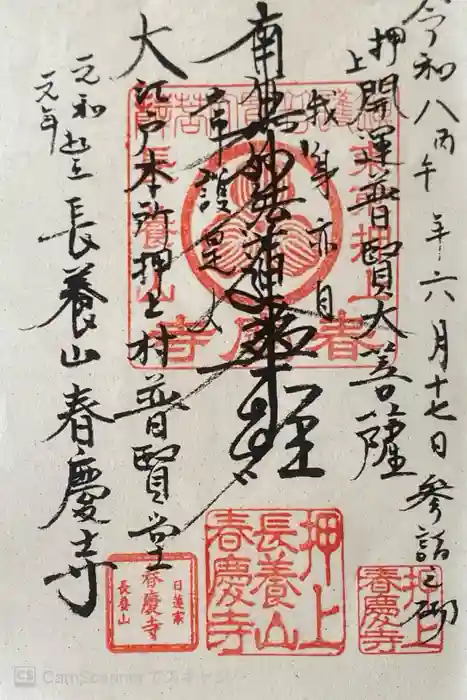 令和八丙午年六月十七日参詣之砌
押上
開運普賢大菩薩
我身亦自
南無妙法蓮華経
守護是人
大江戸本所押上村普賢堂
元和元年
長養山春慶寺
押上
春慶寺
押上
長養山
春慶寺
日蓮宗
春慶寺
長養山
CS CamScannerでスキャン